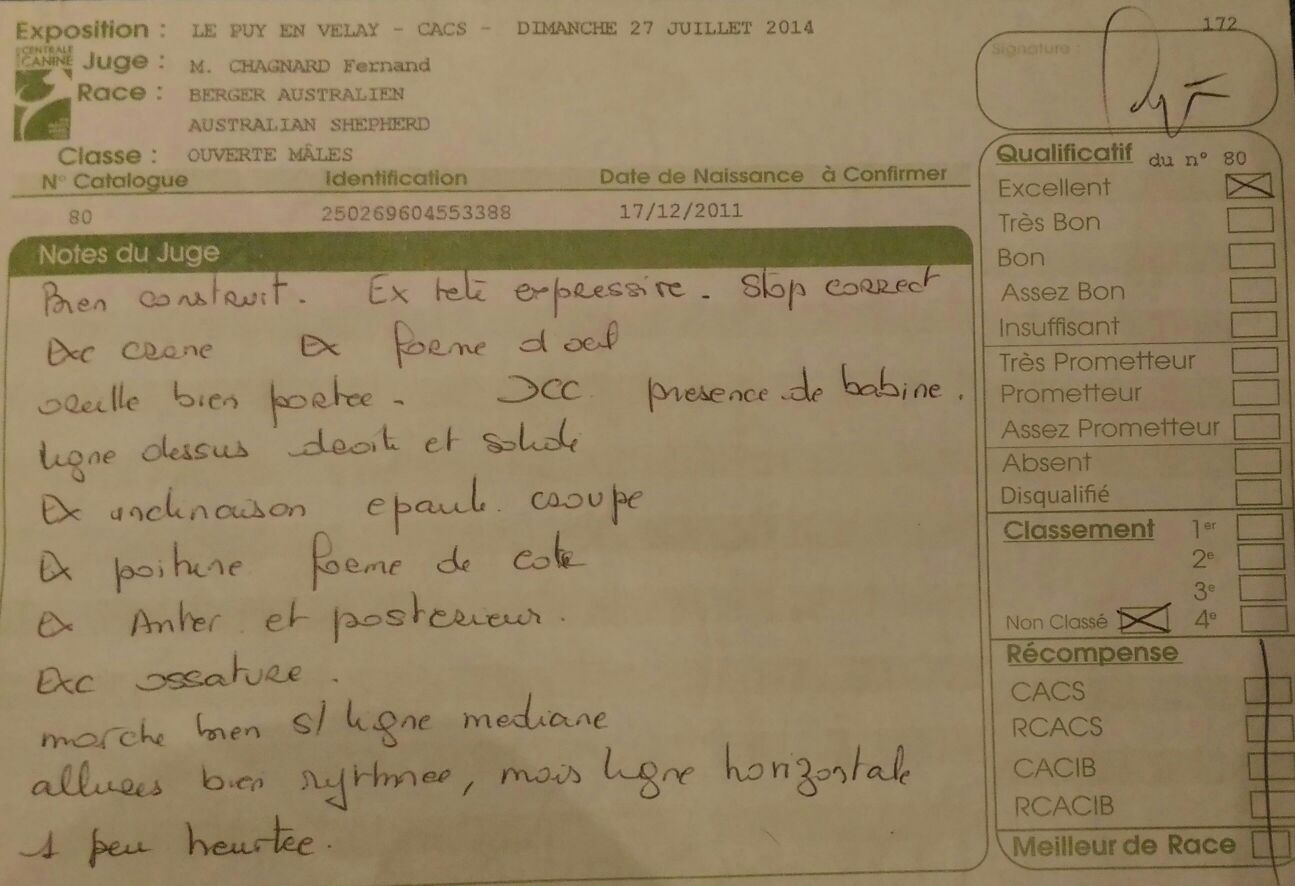 Exposition : LE PUY EN VELAY - CACS - DIMANCHE 27 JUILLET 2014
172
CENTRALE CANINE
Juge : M. CHAGNARD Fernand
Race : BERGER AUSTRALIEN
AUSTRALIAN SHEPHERD
Classe : OUVERTE MÂLES
N° Catalogue Identification Date de Naissance à Confirmer
80 250269604553388 17/12/2011
Signature :
Notes du Juge
Bien construit. Ex tete expressive. Stop correct
Exc crane Ex forme d oeil
oreille bien portee. JCC. presence de babine.
ligne dessus droite et solide
Ex inclinaison epaule. croupe
Ex poitrine forme de cote
Ex Anter. et posterieur.
Exc ossature.
marche bien s/ ligne mediane
allures bien rythmee, mais ligne horizontale
1 peu heurtee.
Qualificatif du n° 80
Excellent
Très Bon
Bon
Assez Bon
Insuffisant
Très Prometteur
Prometteur
Assez Prometteur
Absent
Disqualifié
Classement 1er
2e
3e
Non Classé 4e
Récompense
CACS
RCACS
CACIB
RCACIB
Meilleur de Race